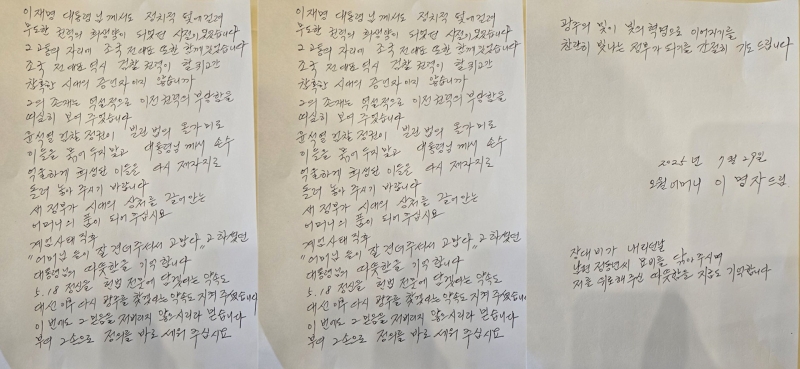 이재명 대통령님께서도 정치적 덫에 걸려
무도한 권력의 희생양이 되셨던 시절이 있었습니다
그 고통의 자리에 조국 전 대표 또한 함께 있었습니다
조국 전 대표 역시 검찰 권력이 할퀴고 간
참혹한 시대의 증인자이지 않습니까
그의 존재는 역설적으로 이전 권력의 부당함을
여실히 보여 주었습니다
윤석열 검찰 정권이 빌린 법의 올가미로
이들을 묶어 두지 말고 대통령님께서 손수
억울하게 희생된 이들을 다시 제자리로
돌려 놓아 주시기 바랍니다
새 정부가 시대의 상처를 끌어안는
어머니의 품이 되어 주십시요
계엄사태 직후
"어머님들이 잘 견뎌주셔서 고맙다"고 하셨던
대통령님의 따뜻한 말 기억합니다
5.18 정신을 헌법 전문에 담겠다는 약속도
대선 이후 다시 광주를 찾겠다는 약속도 지켜 주셨습니다
이번에도 그 믿음을 저버리지 않으시리라 믿습니다
부디 그 손으로 정의를 바로 세워 주십시요
이재명 대통령님께서도 정치적 덫에 걸려
무도한 권력의 희생양이 되셨던 시절이 있었습니다
그 고통의 자리에 조국 전 대표 또한 함께 있었습니다
조국 전 대표 역시 검찰 권력이 할퀴고 간
참혹한 시대의 증인자이지 않습니까
그의 존재는 역설적으로 이전 권력의 부당함을
여실히 보여 주었습니다
윤석열 검찰 정권이 빌린 법의 올가미로
이들을 묶어 두지 말고 대통령님께서 손수
억울하게 희생된 이들을 다시 제자리로
돌려 놓아 주시기 바랍니다
새 정부가 시대의 상처를 끌어안는
어머니의 품이 되어 주십시요
계엄사태 직후
"어머님들이 잘 견뎌주셔서 고맙다"고 하셨던
대통령님의 따뜻한 말 기억합니다
5.18 정신을 헌법 전문에 담겠다는 약속도
대선 이후 다시 광주를 찾겠다는 약속도 지켜 주셨습니다
이번에도 그 믿음을 저버리지 않으시리라 믿습니다
부디 그 손으로 정의를 바로 세워 주십시요
광주의 빛이 빛의 혁명으로 이어지기를
찬란히 빛나는 정부가 되기를 간절히 기도드립니다
2025년 7월 29일
오월어머니 이명자 드림
장대비가 내리던 날
남편 정동년씨 묘비를 닦아 주시며
저를 위로해 주신 따뜻함을 지금도 기억합니다